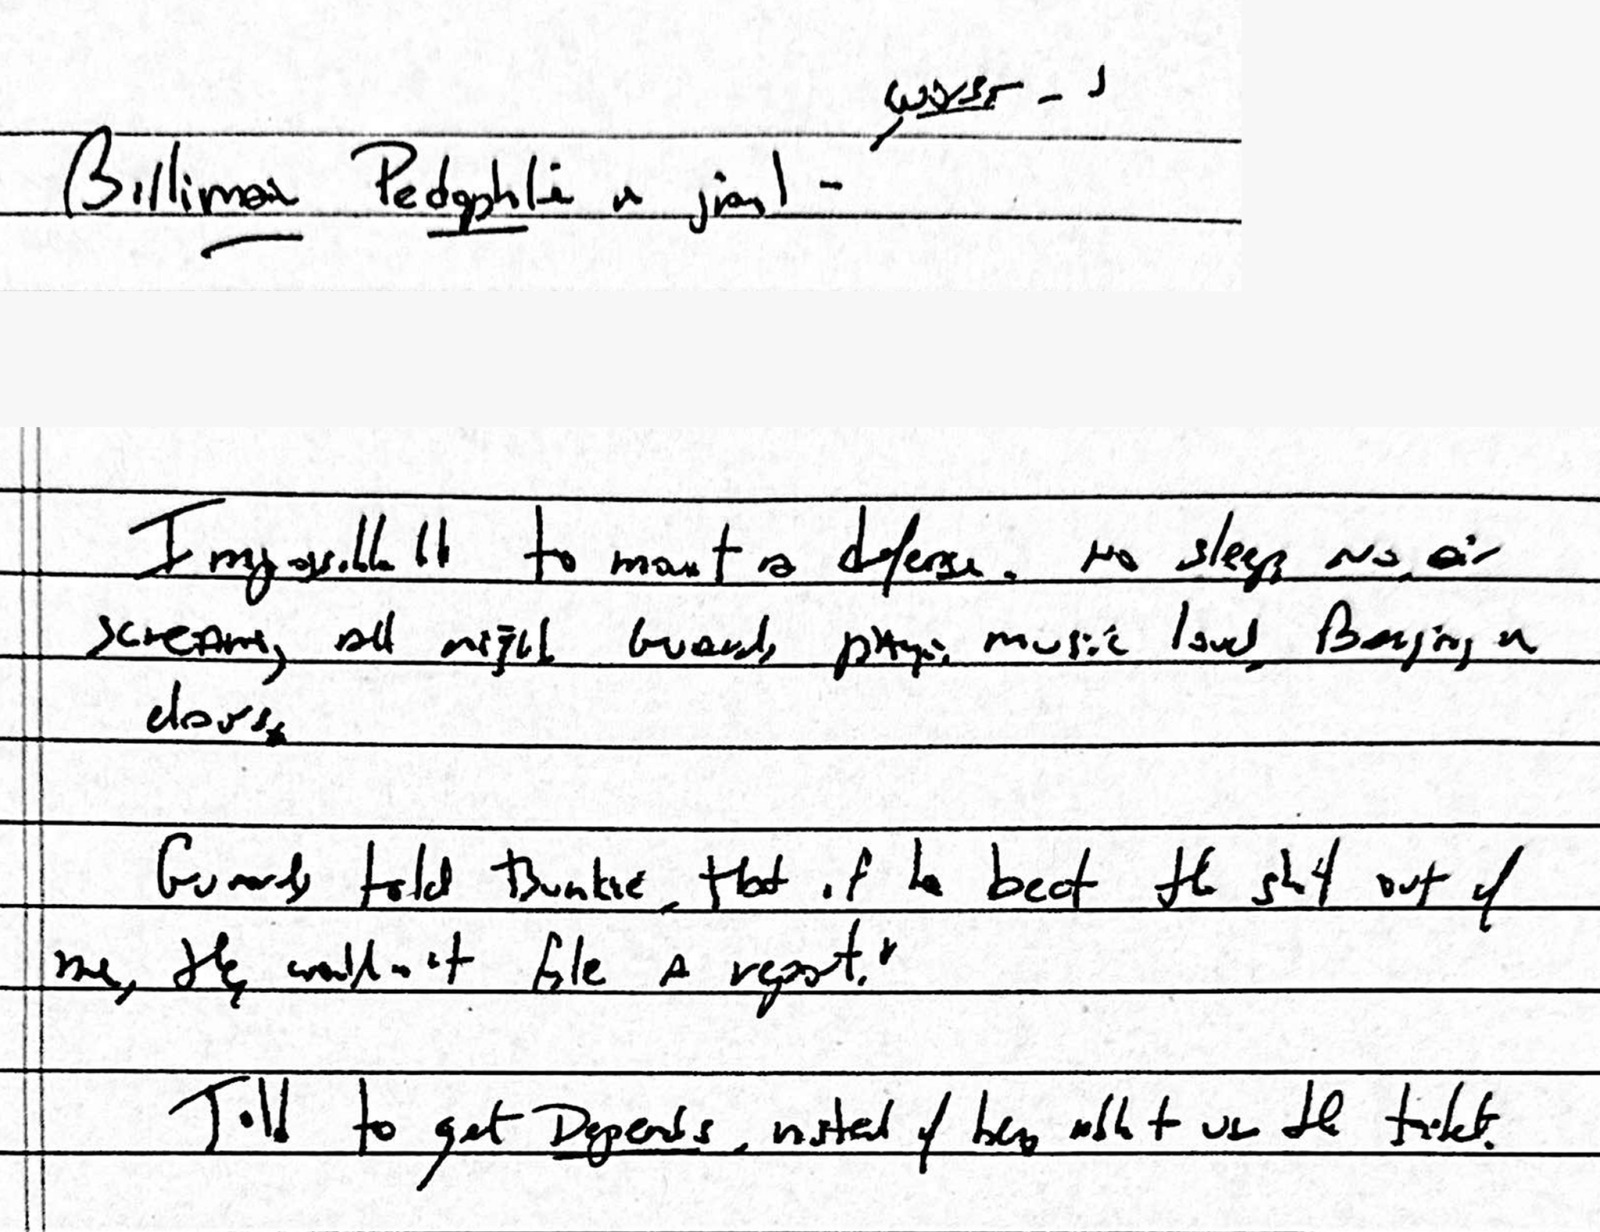 worst -
Billionair Pedophile in jail -
Impossible to mount a defense. No sleep, No air
screaming all night Guards playing music loud, Banging on
doors.
Guards told Bunkie, that if he beat the shit out of
me, they would not file a report."
Told to get Depends, instead of being able to use the toilet.